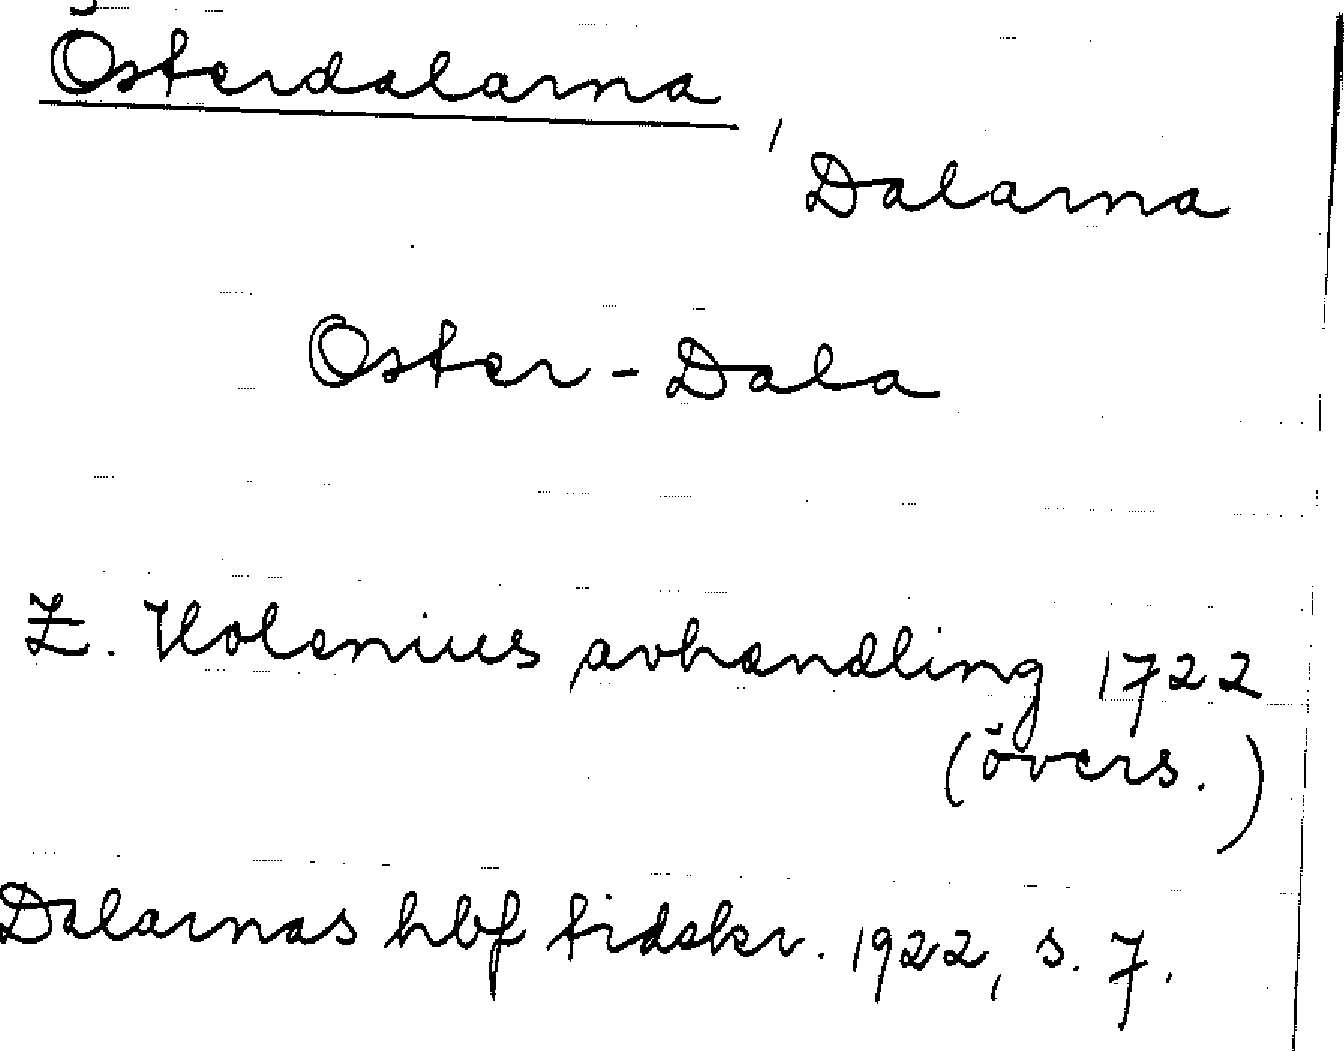 Österdalarna,
Dalarna
Oster-Dala
Z. Holenius avhandling 1722
(övers.)
Dalarnas hbf tidskr. 1922, s. 7.